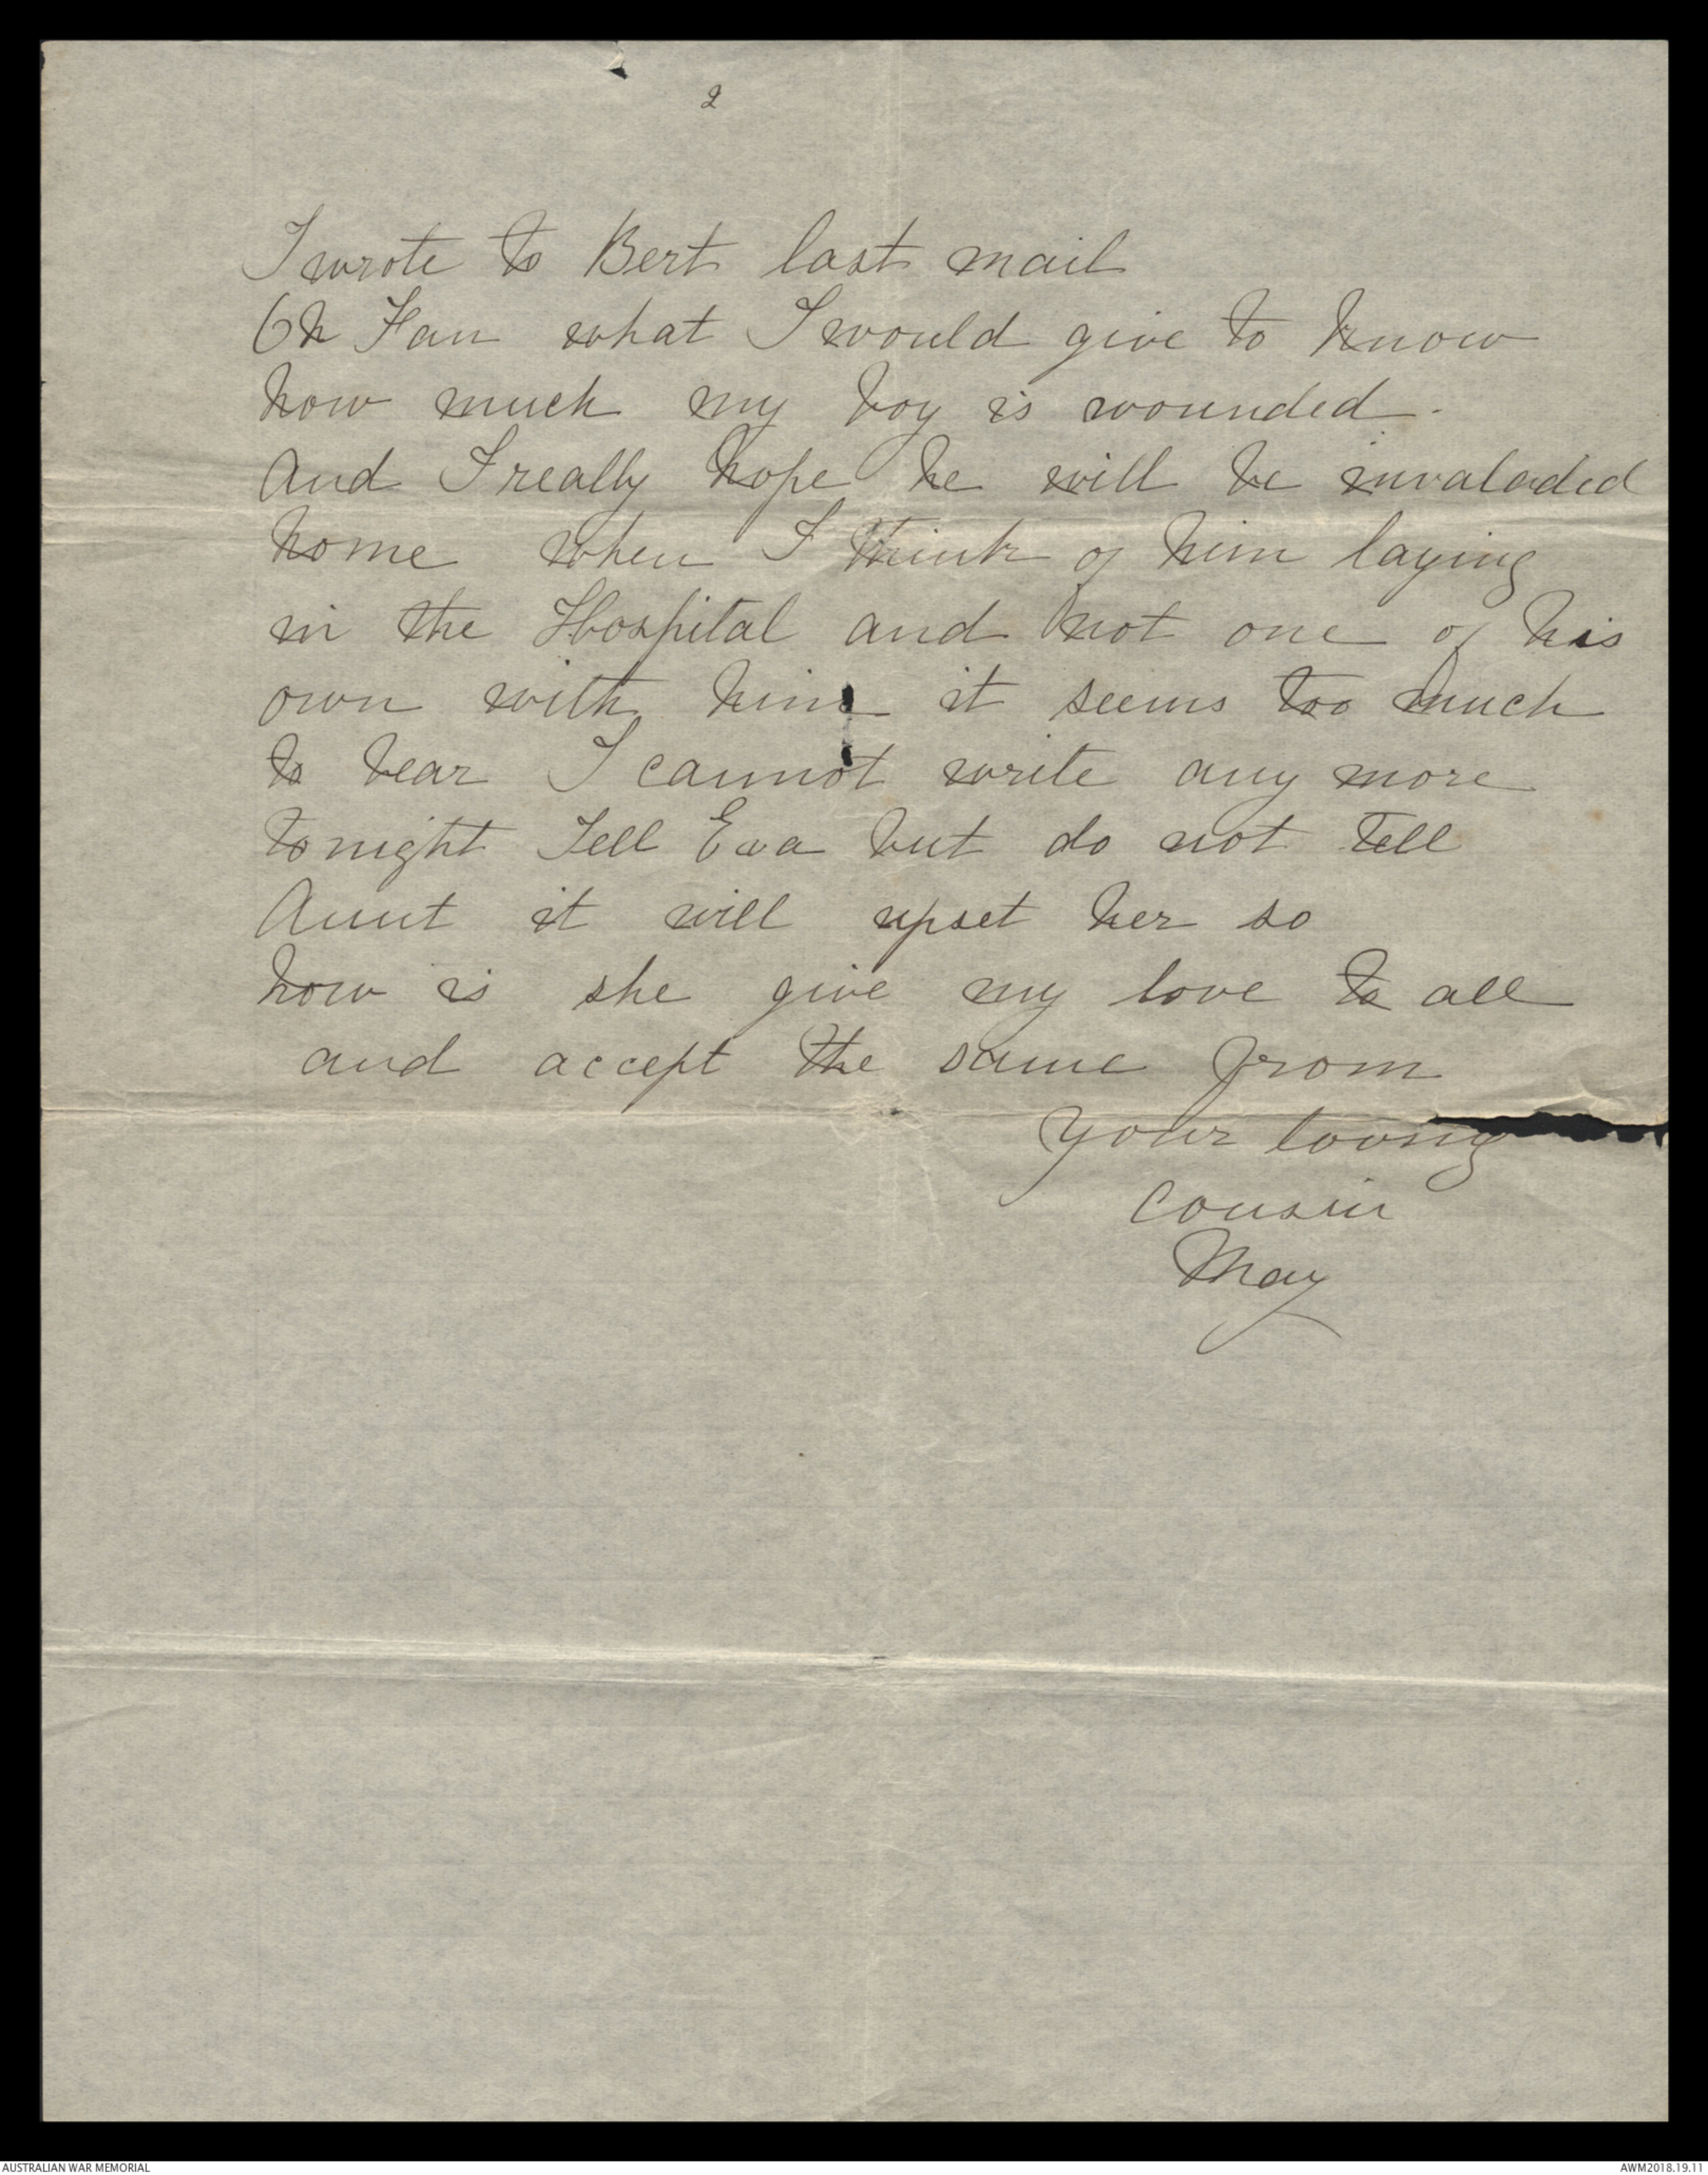 2
I wrote to Bert last mail
Oh Fan what I would give to know
how much my boy is wounded.
And I really hope he will be invaladed
home when I think of him laying
in the Hospital and not one of his
own with him it seems too much
to bear I cannot write any more
tonight Tell Eva but do not Tell
Aunt it will upset her so
how is she give my love to all
and accept the same from
your loving
Cousin
May
AUSTRALIAN WAR MEMORIAL
AWM2018.19.11